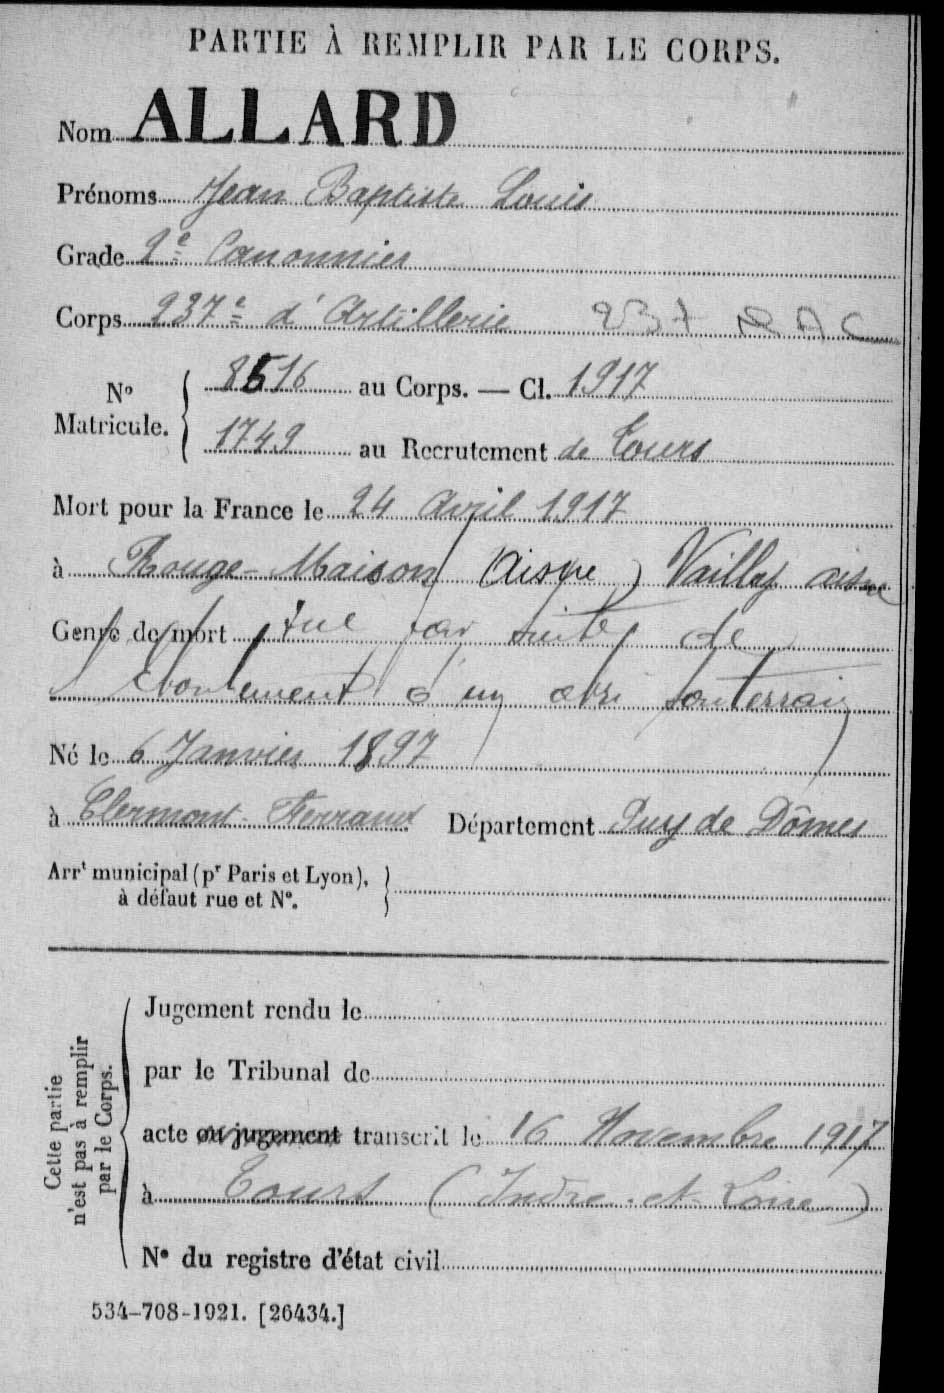 PARTIE À REMPLIR PAR LE CORPS.
Nom ALLARD
Prénoms Jean Baptiste Louis
Grade 2e Canonnier
Corps 237e d'Artillerie 237 RAC
No Matricule. { 8516 au Corps. — Cl. 1917
1749 au Recrutement de Tours
Mort pour la France le 24 Avril 1917
à Rouge-Maison (Aisne) Vailly aisne
Genre de mort tué par suite de
éboulement d'un abri souterrain
Né le 6 Janvier 1897
à Clermont-Ferrand Département Puy de Dômes
Arrt municipal (pr Paris et Lyon), à défaut rue et No. }
Cette partie n'est pas à remplir par le Corps. {
Jugement rendu le
par le Tribunal de
acte ou jugement transcrit le 16 Novembre 1917
à Tours (Indre-et-Loire)
No du registre d'état civil
534-708-1921. [26434.]